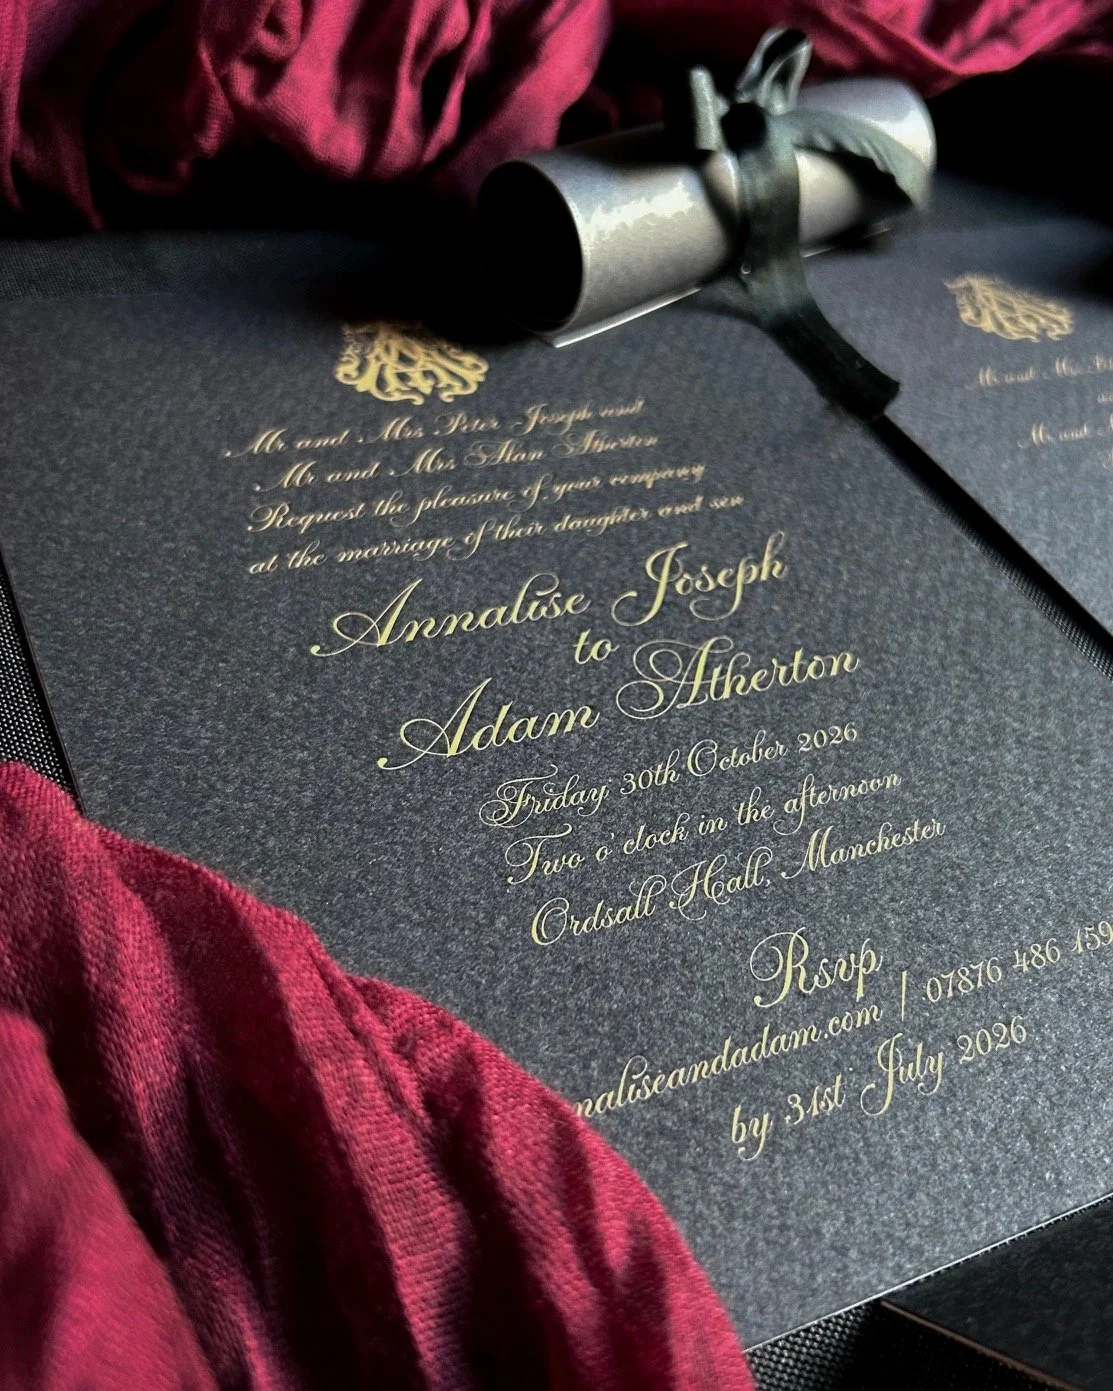 Mr and Mrs Peter Joseph and
Mr and Mrs Alan Atherton
Request the pleasure of your company
at the marriage of their daughter and son
Annalise Joseph
to
Adam Atherton
Friday 30th October 2026
Two o'clock in the afternoon
Ordsall Hall, Manchester
Rsvp
naliseandadam.com | 07876 486 159
by 31st July 2026
Mr and Mrs
Mr and